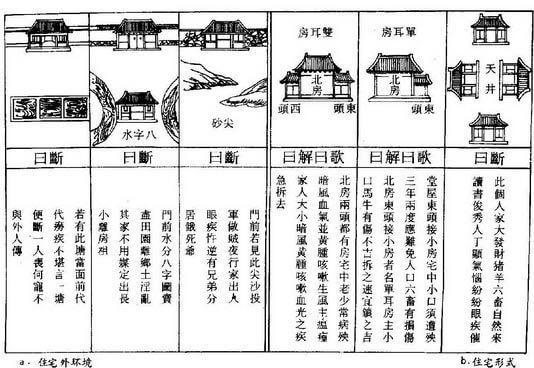 天井
斷曰
此個人家大發財猪羊六畜自然來
讀書俊秀人丁顯氣惱紛紛眼疾催
單耳房
北房
東頭
歌曰解曰
堂屋東頭接小房宅中小口須遭殃
三年兩度應難免人口六畜有損傷
北房東頭接小房者名單耳房主小
口馬牛有傷不吉拆之速宜鎮之吉
雙耳房
北房
東頭
西頭
歌曰解曰
北房兩頭都有房宅中老少常病殃
暗風血氣並黃腫咳嗽生風主瘟瘴
家人大小暗風黃腫咳嗽血光之疾
急拆去
尖砂
斷曰
門前若見此尖沙投
軍做賊夜行家出人
眼疾忤逆有兄弟分
居餓死爺
八字水
斷曰
門前水分八字圖賣
盡田園離鄉土淫亂
其家不用媒定出長
小離房祖
斷曰
若有此塘當面前代
代癆疾不堪言一塘
便斷一人喪何寵不
與外人傳
a. 住宅外环境
b. 住宅形式